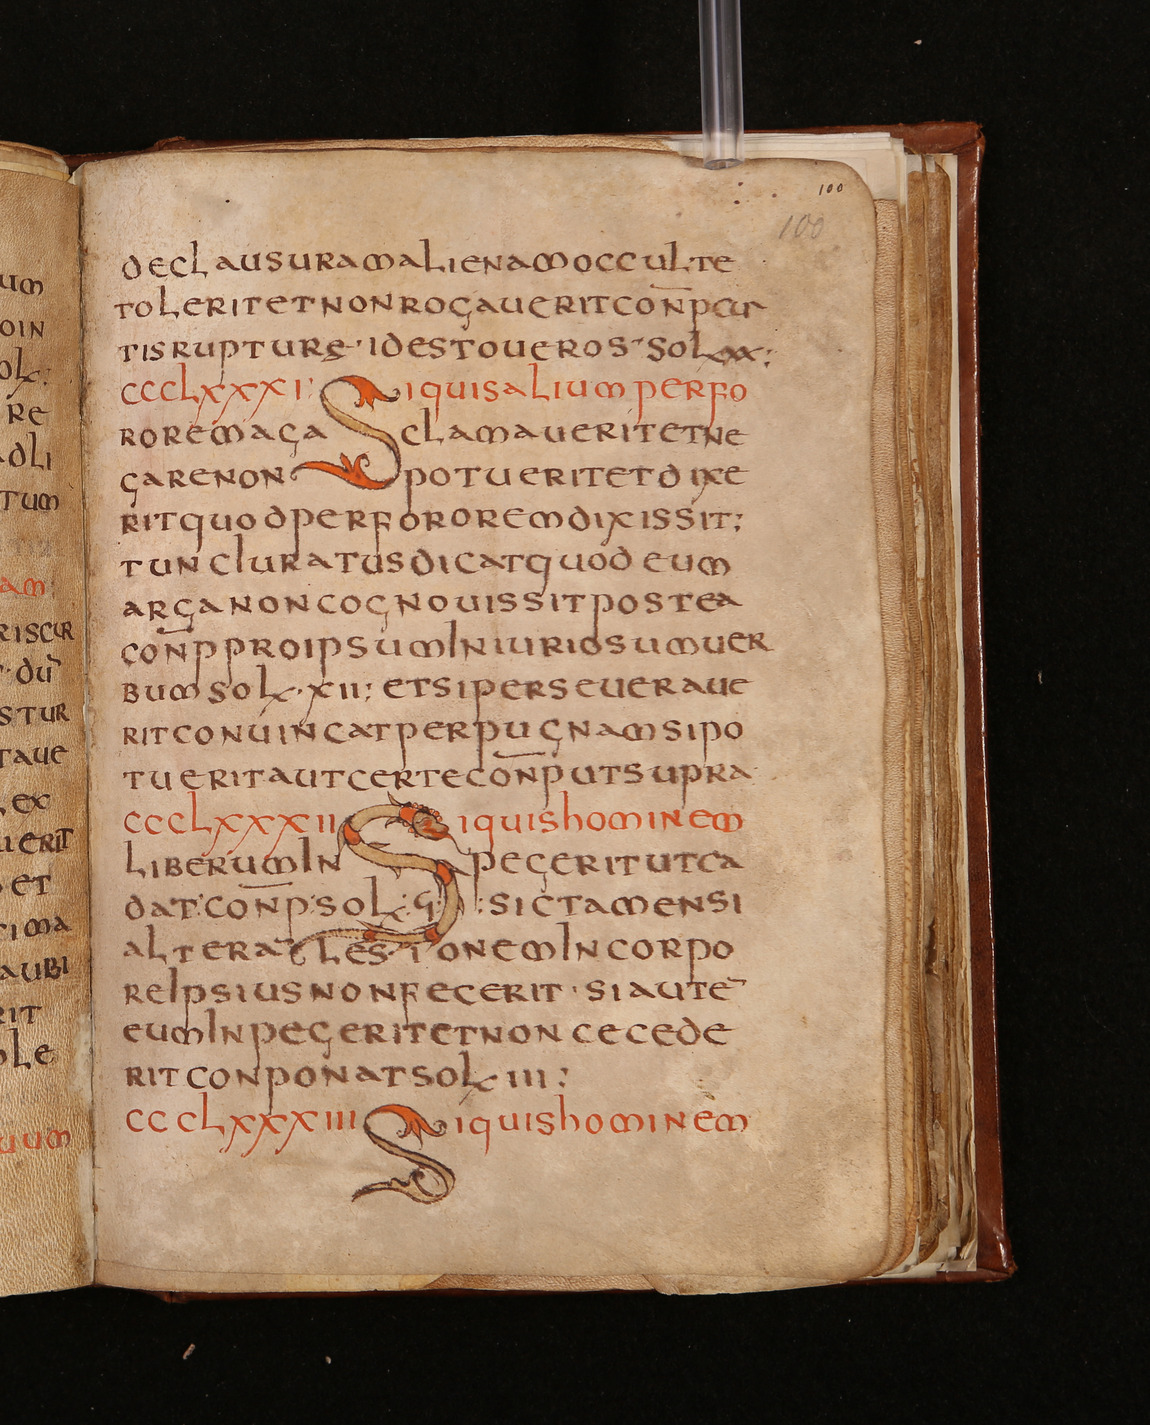 100
100
declausuram alienam occulte
tolerit et non rogaverit conp cur
tis rupture · id est overos · sol xx ;
CCCLXXXI Si quis alium perfo
rorem aga clamaverit et ne
gare non potuerit et dixe
rit quod per fororem dixissit ;
tunc iuratus dicat quod eum
arga non cognovissit postea
conp pro ipsum iniuriosum ver
bum sol · xii ; et si perseverave
rit convincat per pugnam si po
tuerit aut certe conp ut supra
CCCLXXXII Si quis hominem
liberum in pegerit ut ca
dat : conp sol : sic tamen si
altera lesionem in corpo
re ipsius non fecerit · si aute
eum in pegerit et non cecede
rit conponat sol iii ;
CCCLXXXIII Si quis hominem